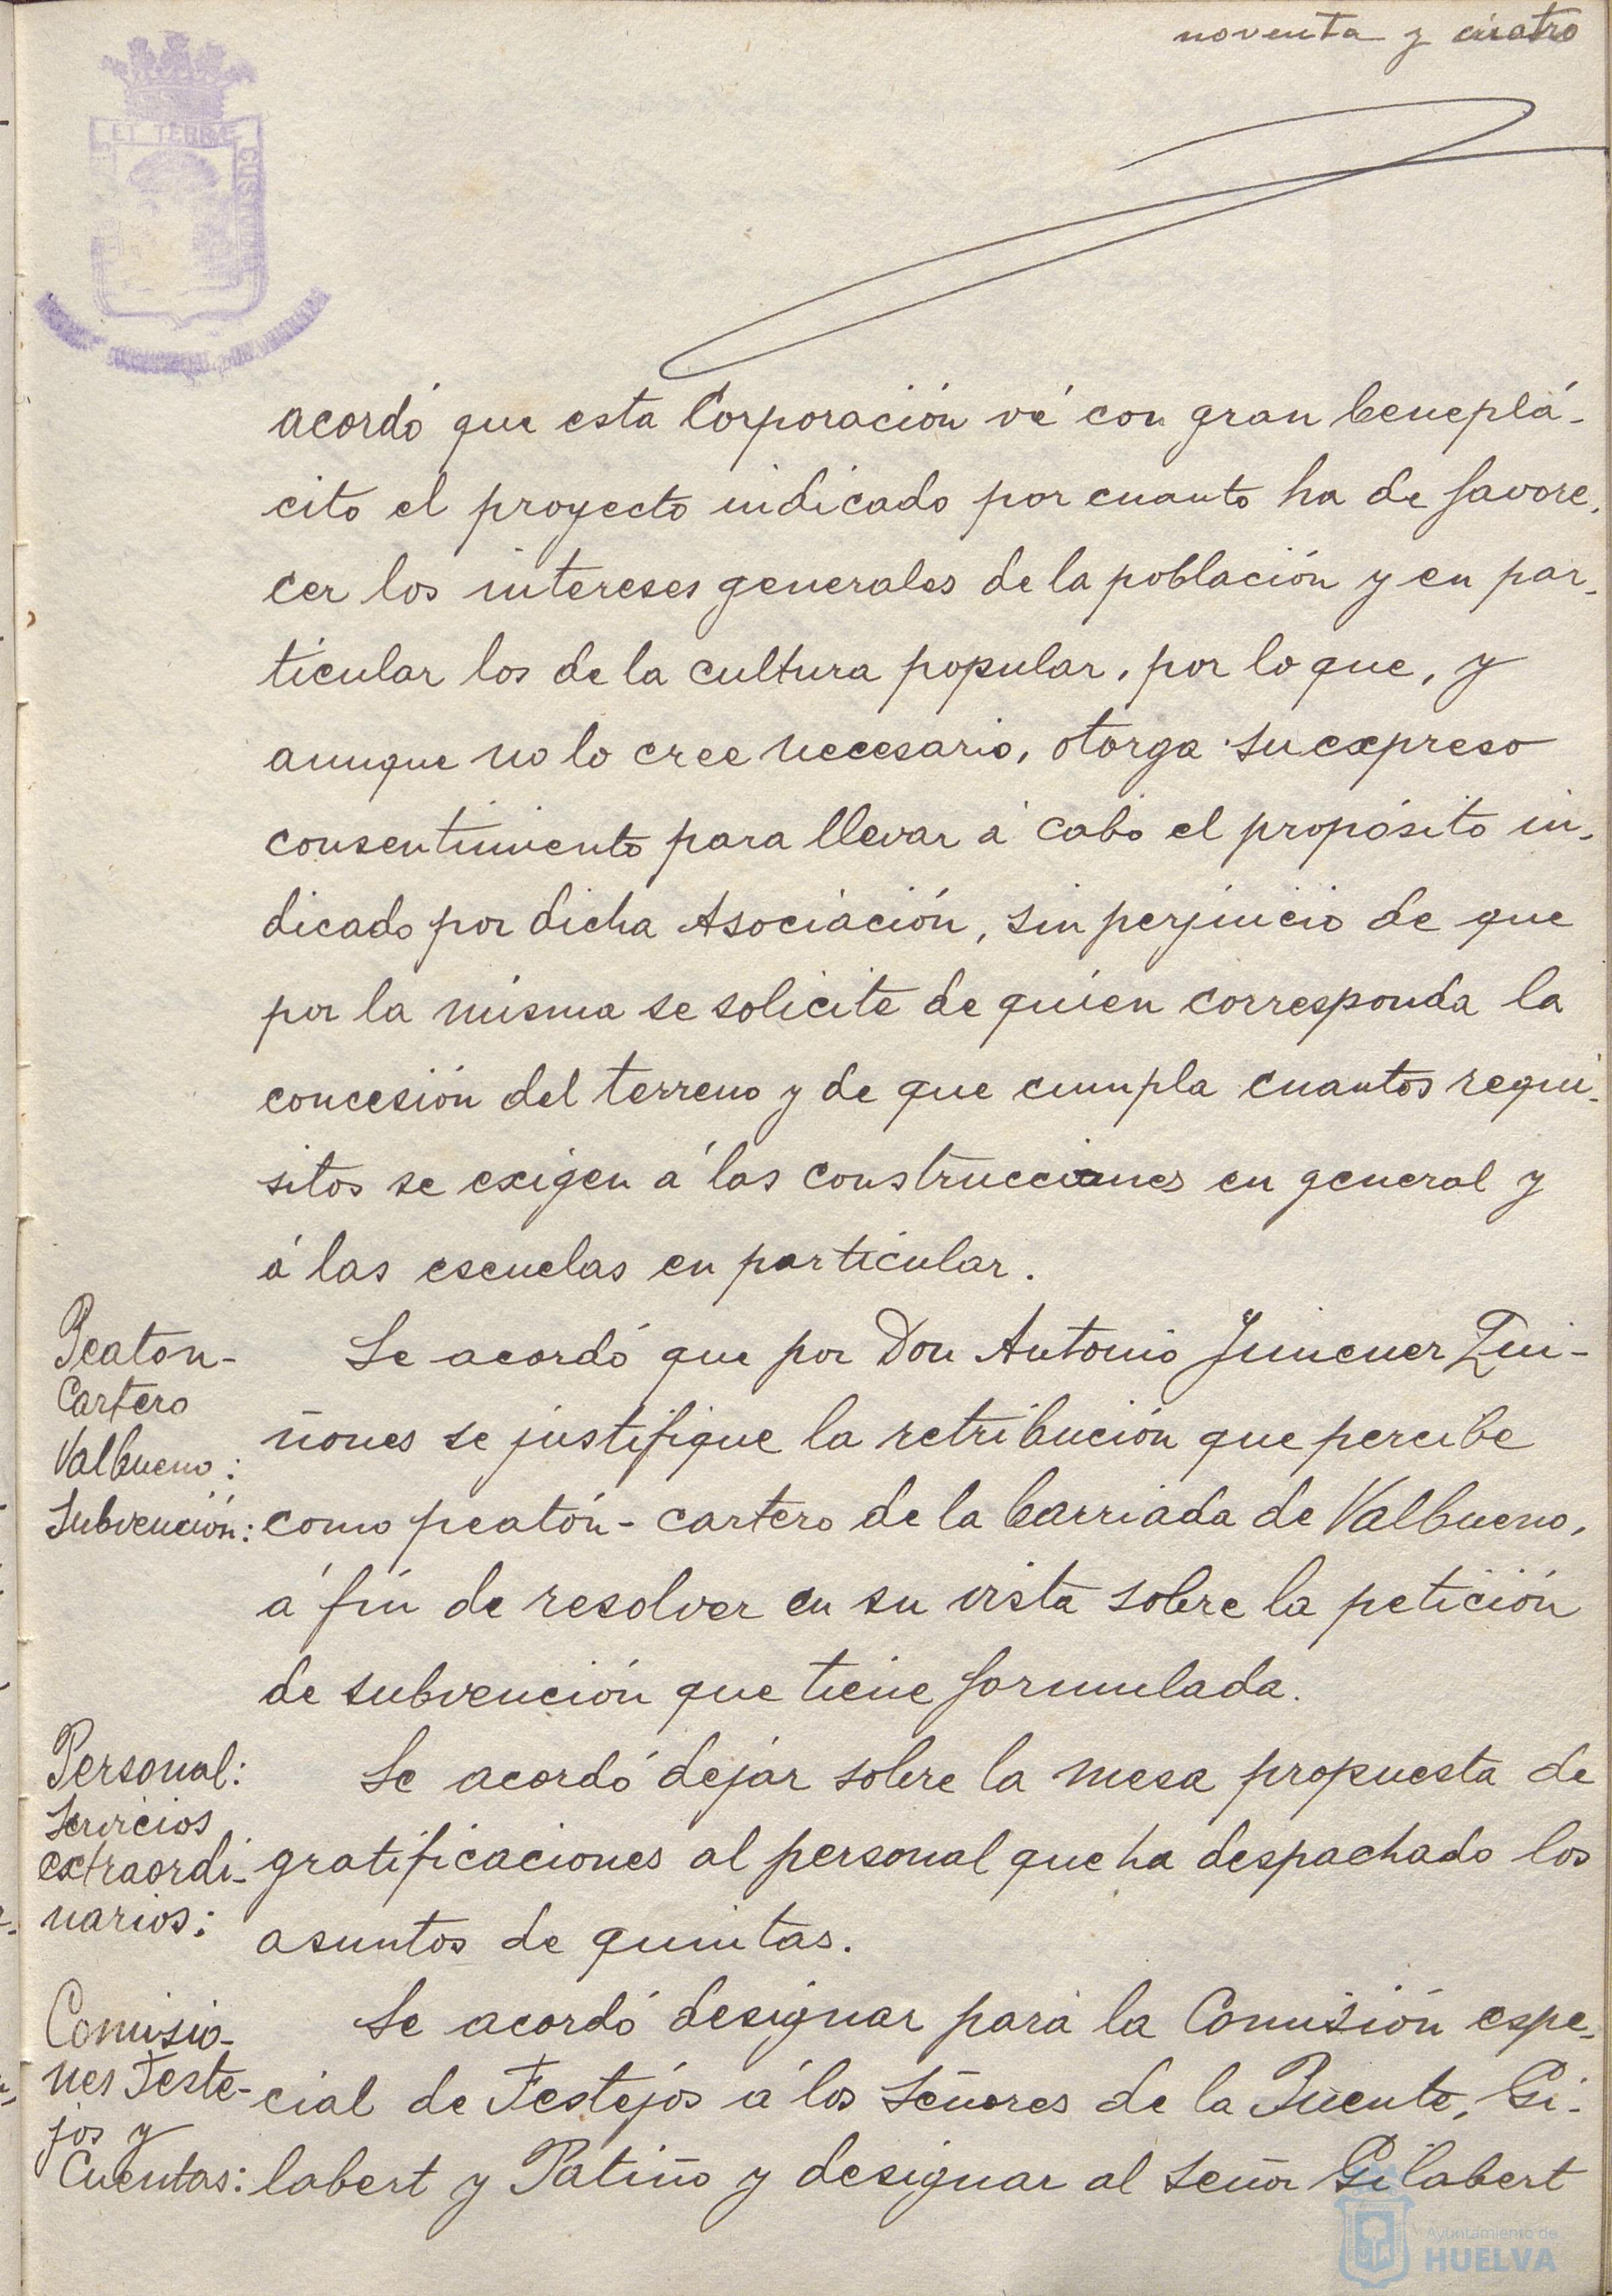 noventa y cuatro
ET TERRÆ
CUSTODIA
acordó que esta Corporación vé con gran beneplá-
cito el proyecto indicado por cuanto ha de favore-
cer los intereses generales de la población y en par-
ticular los de la cultura popular, por lo que, y
aunque no lo cree necesario, otorga su expreso
consentimiento para llevar á cabo el propósito in-
dicado por dicha Asociación, sin perjuicio de que
por la misma se solicite de quien corresponda la
concesión del terreno y de que cumpla cuantos requi-
sitos se exigen á las construcciones en general y
á las escuelas en particular.
Peaton-
Cartero
Valbueno:
Subvención:
Se acordó que por Don Antonio Jimenez Qui-
ñones se justifique la retribución que percibe
como peatón-cartero de la barriada de Valbueno,
á fin de resolver en su vista sobre la petición
de subvención que tiene formulada.
Personal:
Servicios
extraordi-
narios:
Se acordó dejar sobre la mesa propuesta de
gratificaciones al personal que ha despachado los
asuntos de quintas.
Comisio-
nes Feste-
jos y
Cuentas:
Se acordó designar para la Comisión espe-
cial de Festejos á los Señores de la Puente, Gi-
labert y Patiño y designar al Señor Gilabert
Ayuntamiento de
HUELVA